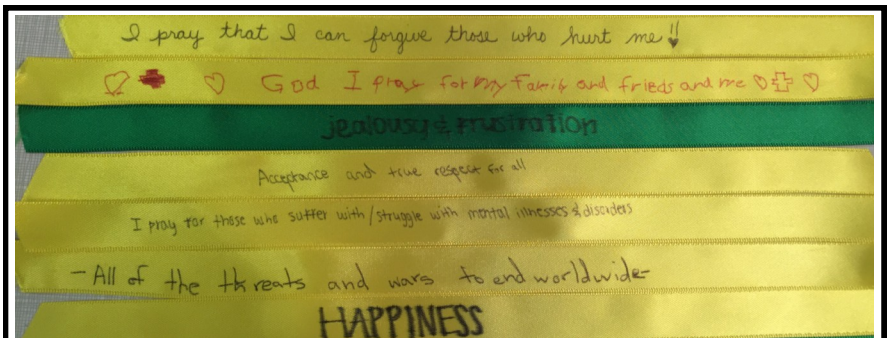 I pray that I can forgive those who hurt me!!
God I pray for my family and frieds and me
jealousy & frustration
Acceptance and true respect for all
I pray for those who suffer with/struggle with mental illnesses & disorders
- All of the threats and wars to end worldwide-
HAPPINESS